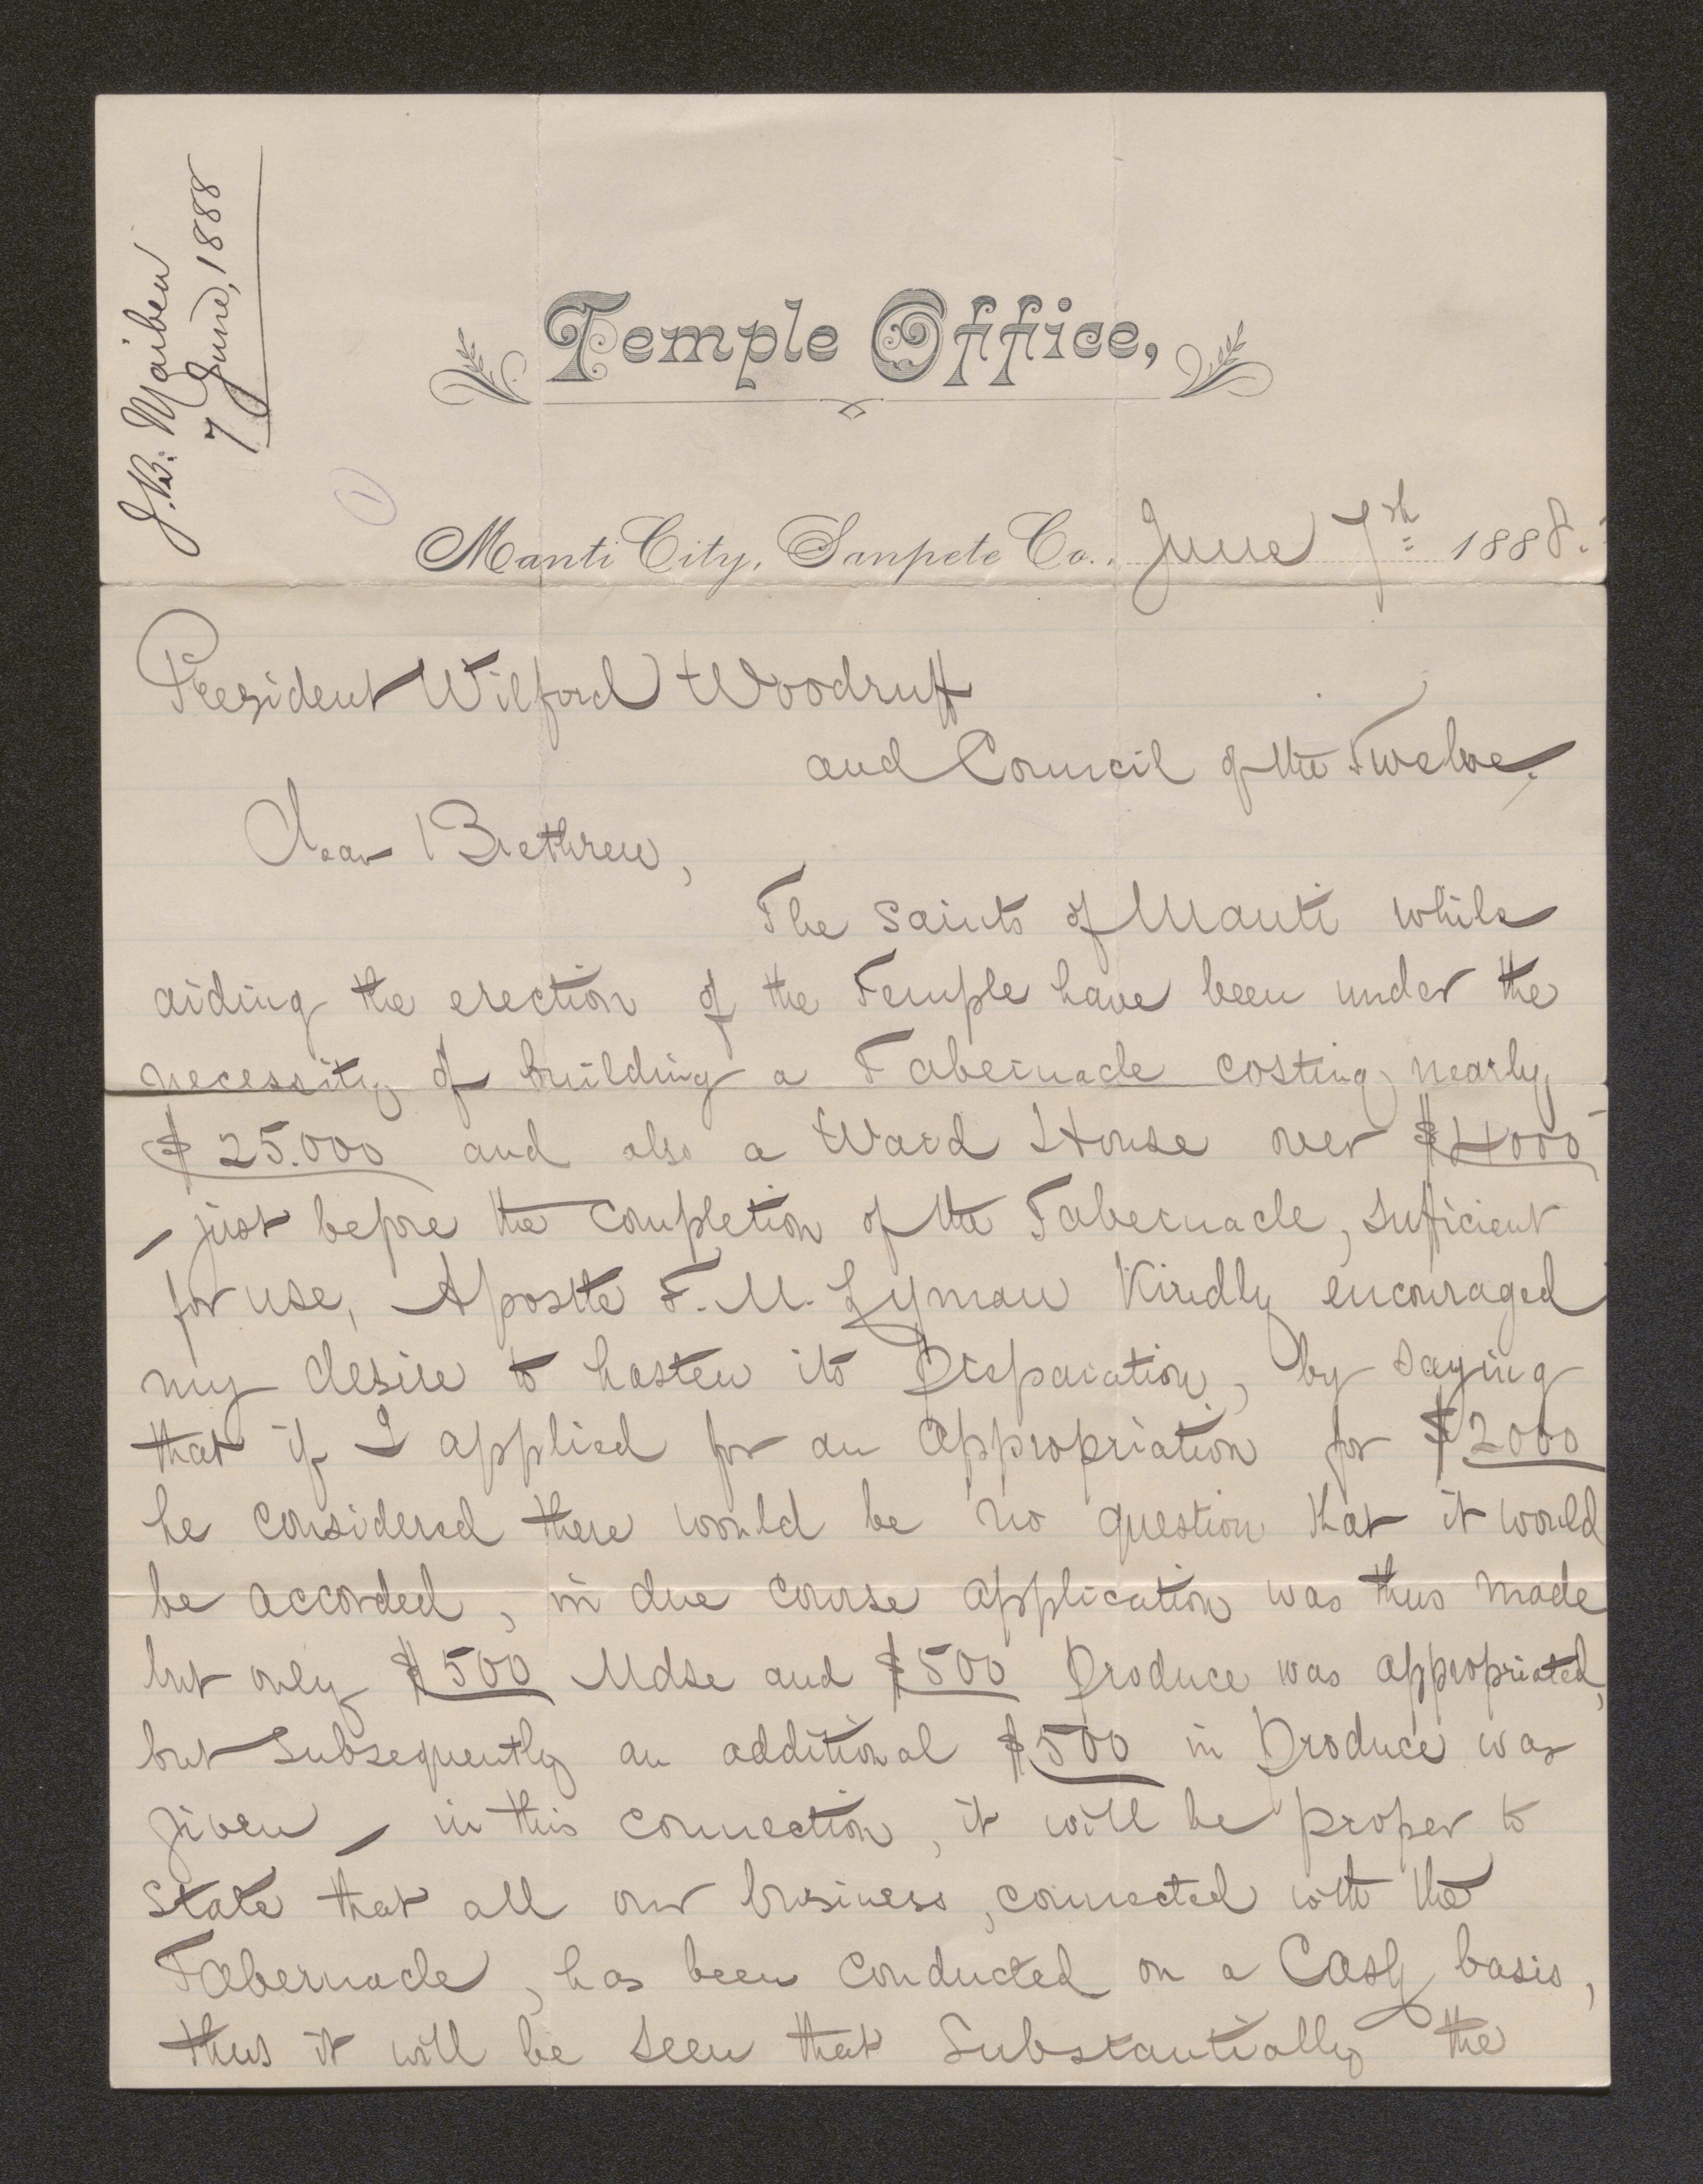 J. B. Maiben
7 June, 1888
Temple Office,
1
Manti City, Sanpete Co., June 7th 1888.
President Wilford Woodruff
and Council of the Twelve,
Dear Brethren,
The Saints of Manti while
aiding the erection of the Temple have been under the
necessity of building a Tabernacle costing nearly
$25.000 and also a Ward House over $4000
– just before the completion of the Tabernacle, sufficient
for use, Apostle F. M. Lyman Kindly encouraged
my desire to hasten its Preparation, by saying
that if I applied for an appropriation for $2000
he considered there would be no question that it would
be accorded, in due course application was thus made
but only $500 Mdse and $500 Produce was appropriated,
but subsequently an additional $500 in Produce was
given – in this connection, it will be proper to
state that all our business, connected with the
Tabernacle, has been conducted on a Cash basis,
thus it will be seen that Substantially the